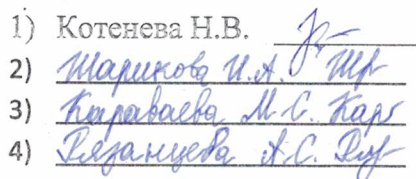 1) Котенева Н.В.
2) Шарикова И.А.
3) Караваева М.С. Кар
4) Рязанцева А.С.